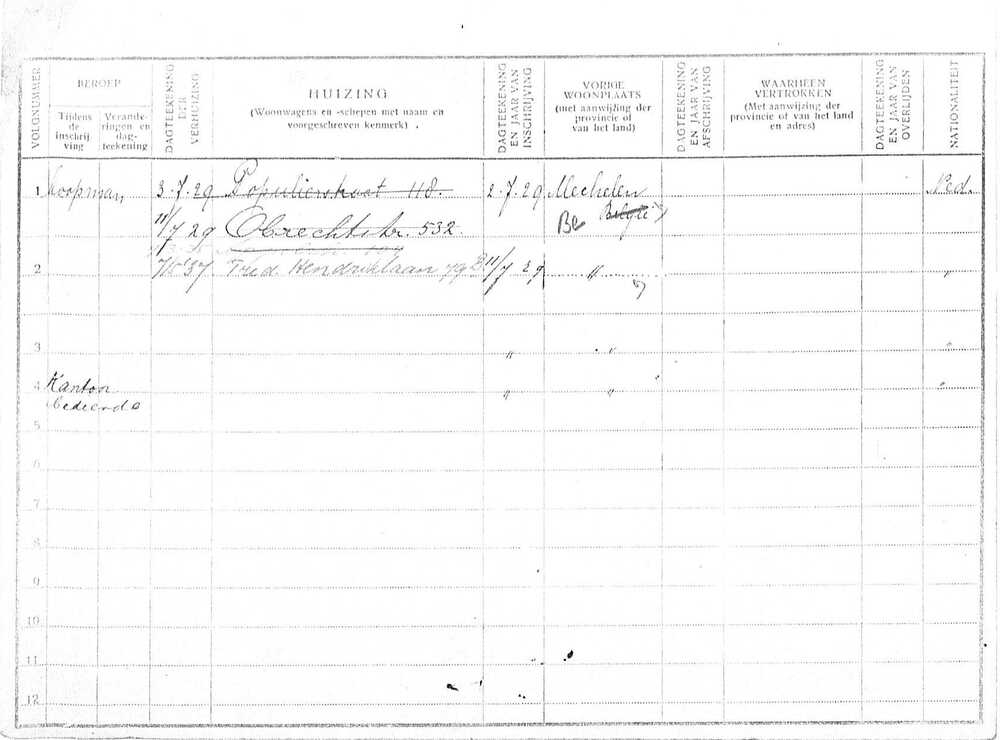 VOLGNUMMER
BEROEP
Tijdens de inschrijving
Verande-ringen en dag-teekening
DAGTEEKENING DER VERHUIZING
HUIZING
(Woonwagens en -schepen met naam en
voorgeschreven kenmerk)
DAGTEEKENING EN JAAR VAN INSCHRIJVING
VORIGE
WOONPLAATS
(met aanwijzing der
provincie of
van het land)
DAGTEEKENING EN JAAR VAN AFSCHRIJVING
WAARHEEN
VERTROKKEN
(Met aanwijzing der
provincie of van het land
en adres)
DAGTEEKENING EN JAAR VAN OVERLIJDEN
NATIONALITEIT
1 koopman 3.7.29 Populierstraat 118. 2.7.29 Mechelen Ned.
België
11/7 29 Obrechtstr. 532 Be
2 7/5'37 Fred. Hendriklaan 79 11/7 29 " "
3 " " "
4 Kantoor " " "
bediende
5
6
7
8
9
10
11
12